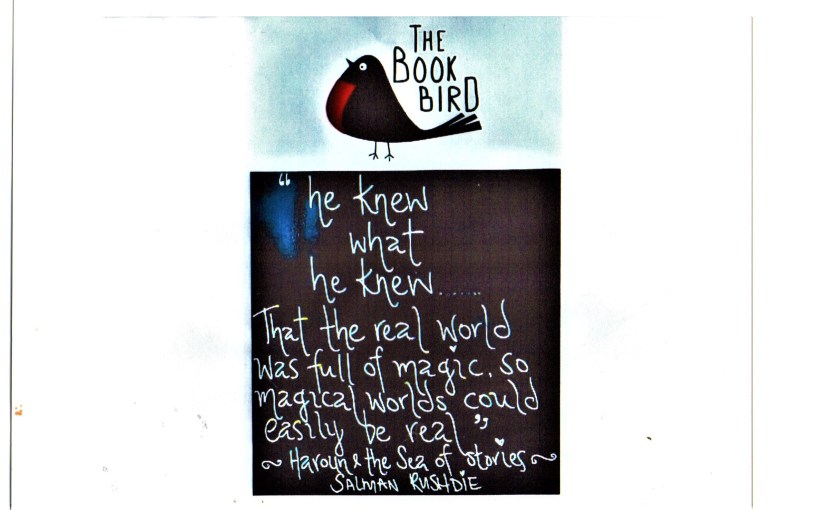 THE
BOOK
BIRD
“ he knew
what
he knew.......
That the real world
was full of magic, so
magical worlds could
easily be real ”
~ Haroun & the Sea of stories ~
SALMAN RUSHDIE